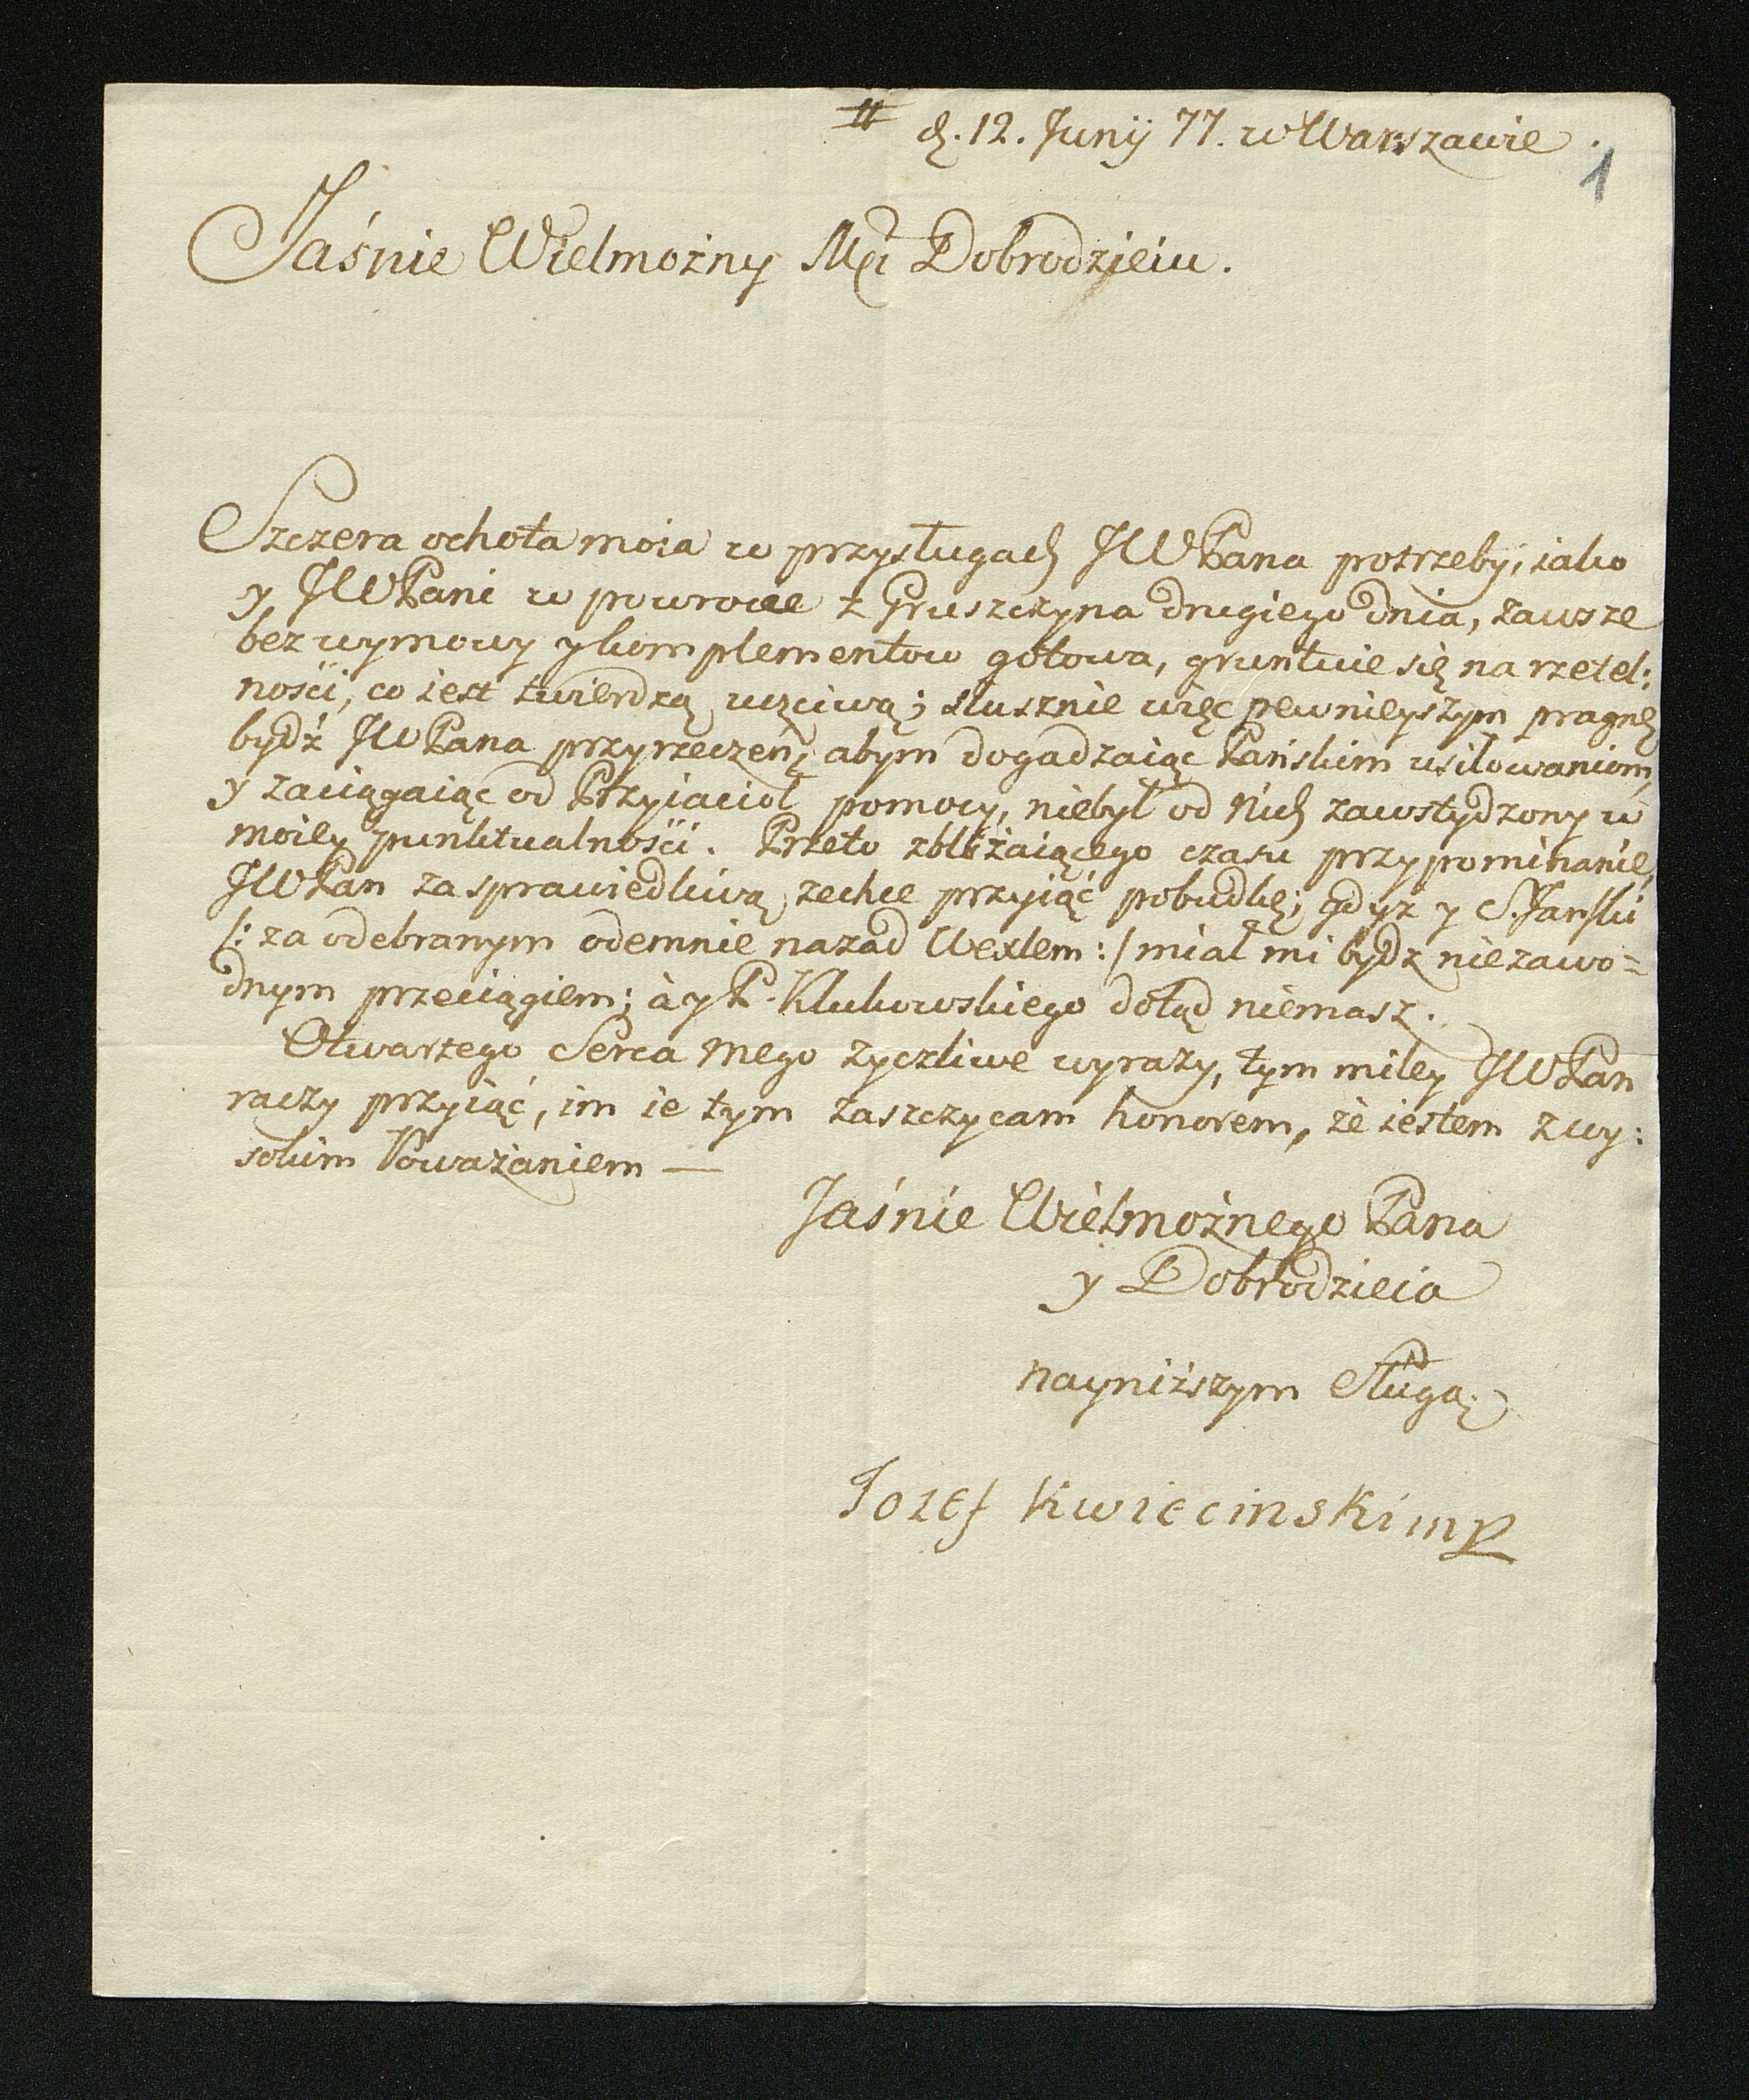 # d. 12. Junij 77. w Warszawie.
1
Jaśnie Wielmożny Mci Dobrodzieiu.
Szczera ochota moia w przysługach JWPana potrzeby, iako
y JWPani w powrocie z Gruszczyna drugiego dnia, zawsze
bez wymowy y komplementow gotowa, gruntuie się na rzetel:
nosci, co iest twierdzą uczciwą; słusznie więc pewnieyszym pragnę
bydź JWPana przyrzeczeń, abym dogadzaiąc Pańskim usiłowaniom,
y zaciągaiąc od Przyiacioł pomocy, niebył od Nich zawstydzony w
moiey punktualności. Przeto zbliżaiącego czasu przypominanie,
JWPan za sprawiedliwą zechce przyiąć pobudkę; gdyz y S. Janski
/: za odebranym odemnie nazad Wexlem :/ miał mi bydz niezawo=
dnym przeciągiem; à y P. Klukowskiego dotąd niemasz.
Otwartego Serca mego zyczliwe wyrazy, tym miley JWPan
raczy przyiąć, im ie tym zaszczycam honorem, że iestem z wy:
sokim Poważaniem —
Jaśnie Wielmożnego Pana
y Dobrodzieia
nayniższym Sługą
Jozef Kwiecinski mp